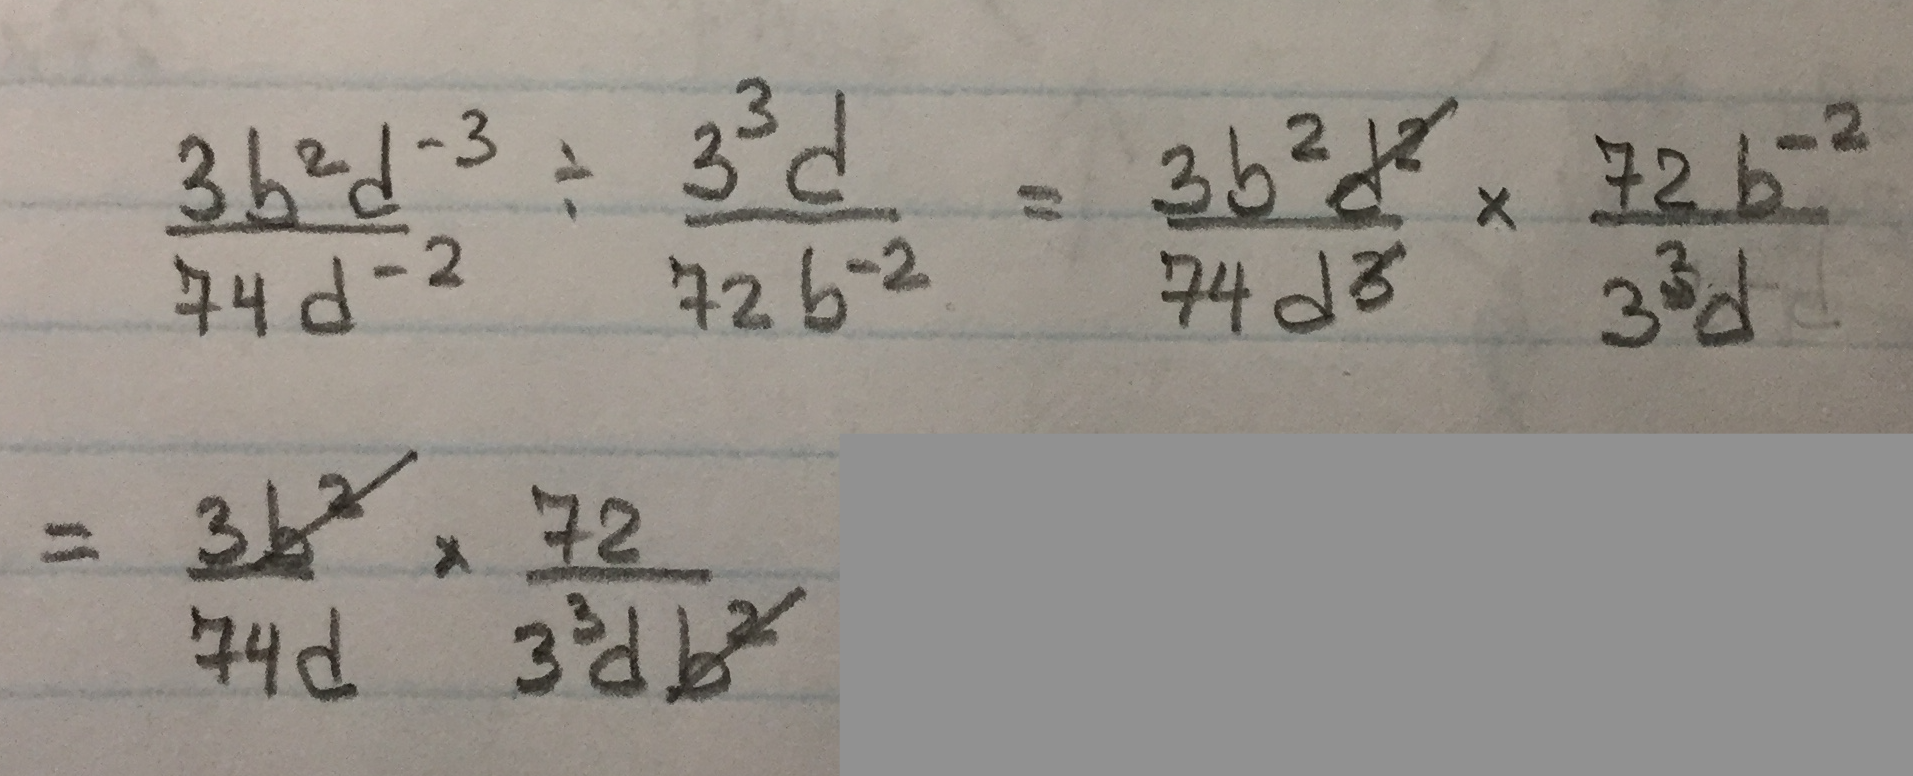 \frac{3b^2d^{-3}}{74d^{-2}} ÷ \frac{3^3d}{72b^{-2}} = \frac{3b^2d^2}{74d^3} × \frac{72b^{-2}}{3^3d}
= \frac{3b^2}{74d} × \frac{72}{3^3db^2}